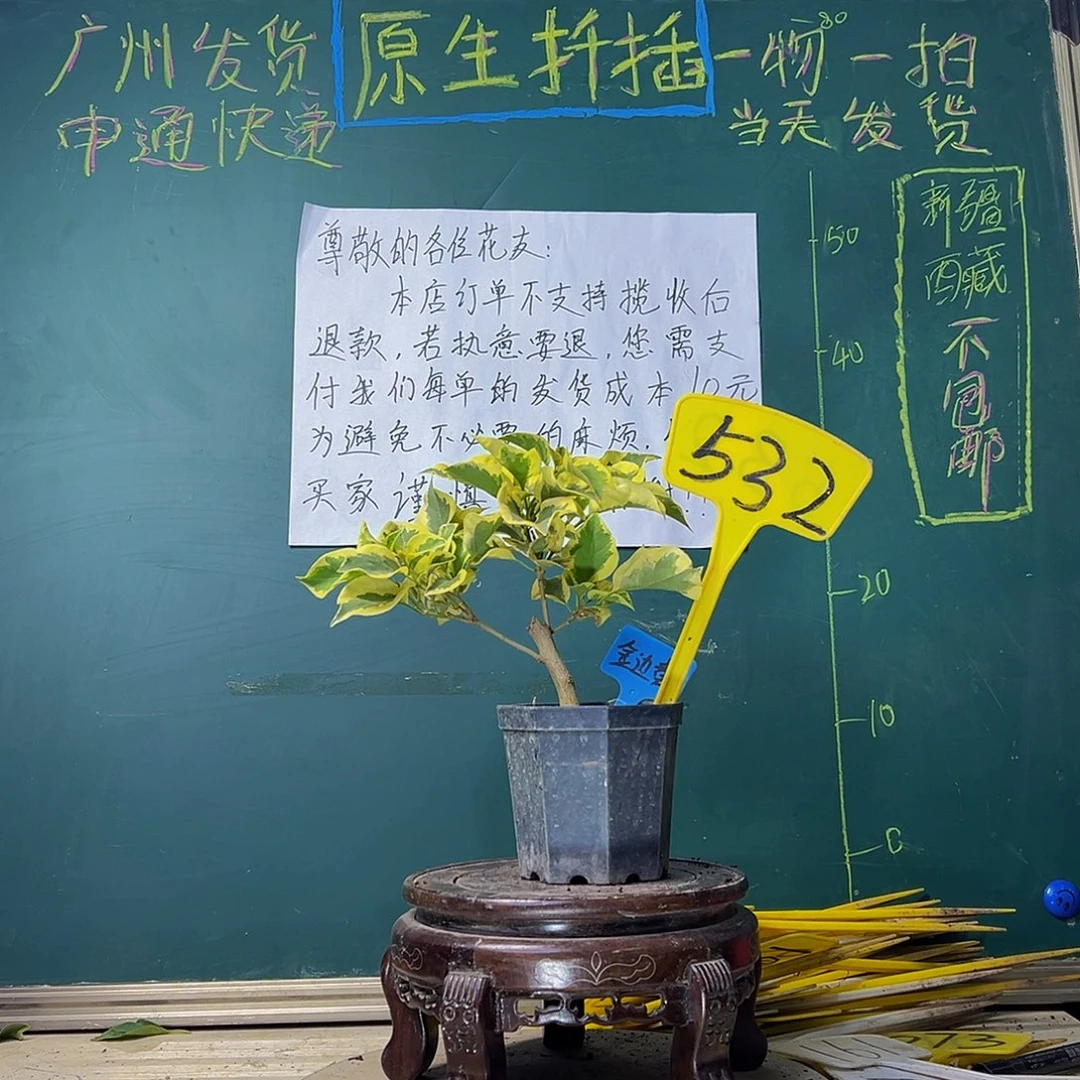 广州发货
申通快递
原生扦插
一物一拍
当天发货
80
新疆
西藏
不包邮
尊敬的各位花友:
本店订单不支持揽收后
退款,若执意要退,您需支
付我们每单的发货成本10元
为避免不必要的麻烦,
买家谨慎
!!
532
金边
50
40
20
10
0